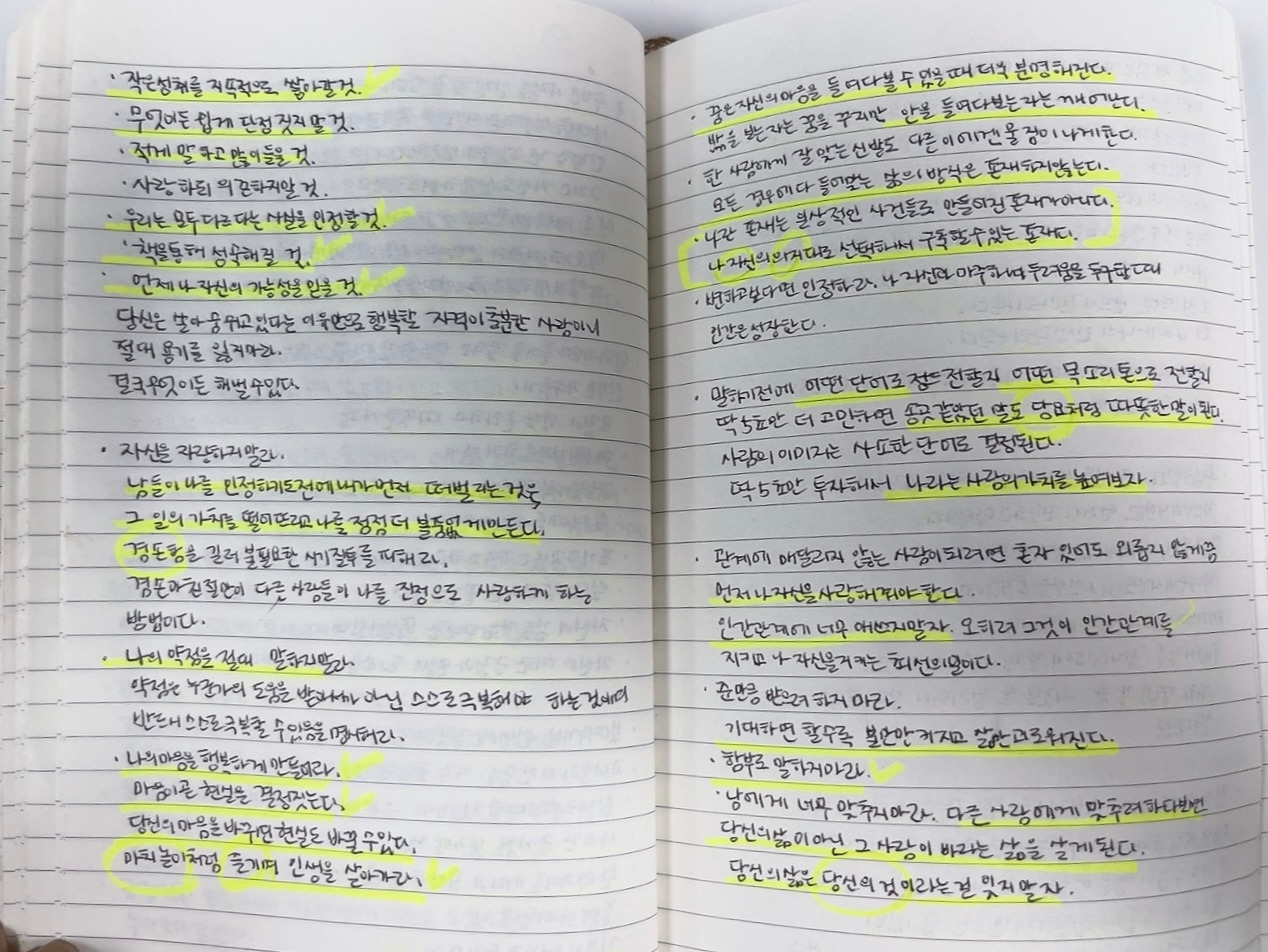 · 작은성취를 지속적으로 쌓아갈것.
· 무엇이든 쉽게 단정 짓지말 것.
· 적게 말하고 많이들을 것.
· 사랑하되 의존하지말 것.
· 우리는 모두 다르다는 사실을 인정할 것.
· 책을통해 성숙해질 것.
· 언제나 자신의 가능성을 믿을 것.
당신은 살아 숨쉬고있다는 이유만으로 행복할 자격이 충분한 사람이니
절대 용기를 잃지마라.
결국무엇이든 해낼수있다.
· 자신을 자랑하지말라.
남들이 나를 인정하기도전에 내가 먼저 떠벌리는것은
그 일의 가치를 떨어뜨리고 나를 점점 더 볼품없게만든다.
겸손함을 길러 불필요한 시기질투를 피해라.
겸손과 친절만이 다른 사람들이 나를 진정으로 사랑하게 하는
방법이다.
· 나의 약점을 절대 말하지말라
약점은 누군가의 도움을 받아서가 아닌 스스로 극복해야 하는것이며
반드시 스스로극복할 수있음을 명심해라.
· 나의마음을 행복하게 만들어라.
마음이곧 현실을 결정짓는다.
당신의 마음을바꾸면 현실도 바꿀수있다.
마치놀이처럼 즐기며 인생을 살아가라.
· 꿈은 자신의 마음을 들여다볼 수 있을 때 더욱 분명해진다.
밖을 보는자는 꿈을 꾸지만 안을 들여다보는자는 깨어난다.
· 한 사람에게 잘 맞는신발도 다른 이에겐 물집이 나게한다.
모든 경우에 다 들어맞는 삶의 방식은 존재하지않는다.
· 나란 존재는 일상적인 사건들로 만들어진 존재가아니다.
나 자신의의지대로 선택해서 구독할수있는 존재다.
· 변하고싶다면 인정하라. 나 자신과 마주하여 두려움을 극복할때
인간은성장한다.
· 말하기전에 어떤 단어로 전달할지 어떤 목소리톤으로 전할지
딱 5초만 더 고민하면 송곳 같았던 말도 담요처럼 따뜻한 말이된다.
사람의 이미지는 사소한 단어로 결정된다.
딱 5초만 투자해서 나라는 사람의가치를 높여보자.
· 관계에 매달리지 않는 사람이되려면 혼자 있어도 외롭지 않게끔
먼저 나자신을 사랑해줘야한다.
인간관계에 너무 애쓰지말자. 오히려 그것이 인간관계를
지키고 나 자신을지키는 최선의길이다.
· 준만큼 받으려 하지 마라.
기대하면 할수록 불안만 커지고 삶만 고로워진다.
· 함부로 말하지마라.
· 남에게 너무 맞추지마라. 다른 사람에게 맞추려하다보면
당신의삶이 아닌 그 사람이 바라는 삶을 살게 된다.
당신의삶은 당신의 것 이라는걸 잊지말자.